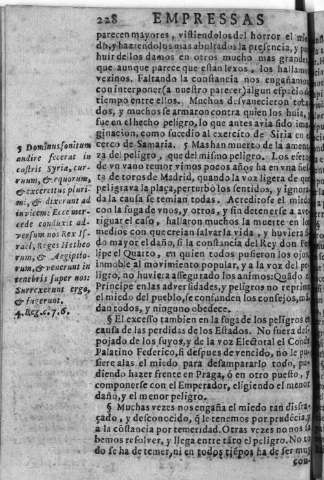 228 EMPRESSAS
parecen mayores, vistiendolos del horror el mie
do, y haziendolos mas abultados la presencia, y por
huir de los daños en otros mucho mas grandes
que aunque parece que están lexos, los hallamos
vezinos. Faltando la constancia nos engañamos
con interponer (a nuestro parecer) algun espacio de
tiempo entre ellos. Muchos desvanecieron toca
dos, y muchos se armaron contra quien los huía,
fue en el hecho peligro, lo que antes avia sido ima
ginacion, como sucedio al exercito de Siria en el
cerco de Samaria. 5 Mas han muerto de la amena
za del peligro, que del mismo peligro. Los efetos
de un vano temor vimos pocos años ha en una fies
ta de toros de Madrid, quando la voz ligera de que
peligrava la plaça, perturbò los sentidos, y ignora
da la causa se temian todas. Acreditose el miedo
con la fuga de unos, y otros, y sin detenerse a ave
riguar el caso, hallaron muchos la muerte en los
medios con que creian salvar la vida, y huviera si
do mayor el daño, si la constancia del Rey don Fe
lipe el Quarto, en quien todos pusieron los ojos
inmoble al movimiento popular, y a la voz del pe
ligro, no huviera assegurado los animos. Quãdo el
Principe en las adversidades, y peligros no reprime
el miedo del pueblo, se confunden los consejos, mã
dan todos, y ninguno obedece.
§ El excesso tambien en la fuga de los peligros es
causa de las perdidas de los Estados. No fuera des
pojado de los suyos, y de la voz Electoral el Conde
Palatino Federico, si despues de vencido, no le pu
siera alas el miedo para desampararlo todo, pu
diendo hazer frente en Praga, ò en otro puesto, y
componerse con el Emperador, eligiendo el menor
daño, y el menor peligro.
§ Muchas vezes nos engaña el miedo tan disfra
çado, y desconocido, q̃ le tenemos por prudẽcia, y
a la cõstancia por temeridad. Otras vezes no nos sa
bemos resolver, y llega entre tãto el peligro. No to
do se ha de temer, ni en todos tiẽpos ha de ser muy
con-
5 Dominus sonitum
audire fecerat in
castris Syriæ, cur-
ruum, & equorum,
& exercitus pluri-
mi, & dixerunt ad
invicem: Ecce mer-
cede conduxit ad-
versum nos Rex Is-
rael, Reges Hetheo-
rum, & Aegiptio-
rum, & venerunt in
tenebris super nos:
Surrexerunt ergo,
& fugerunt.
4. Reg. c. 7. 6.